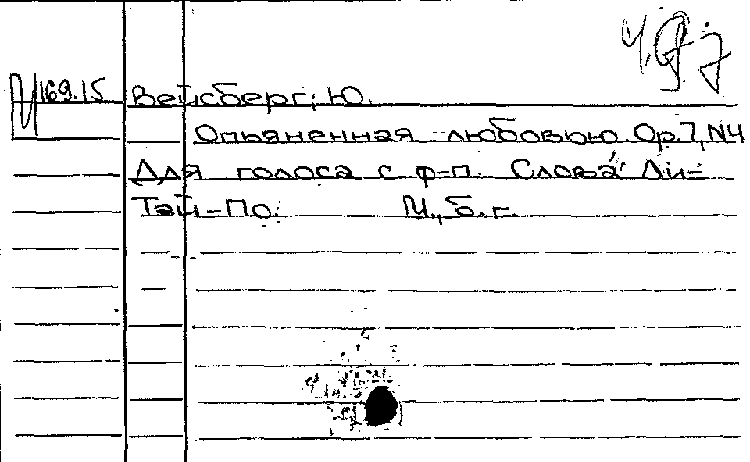 169.15 Вейсберг, Ю.
Опьяненная любовью. Ор.7, N4
Для голоса с ф-п. Слова Ли-
Тай-По. М., б.г.